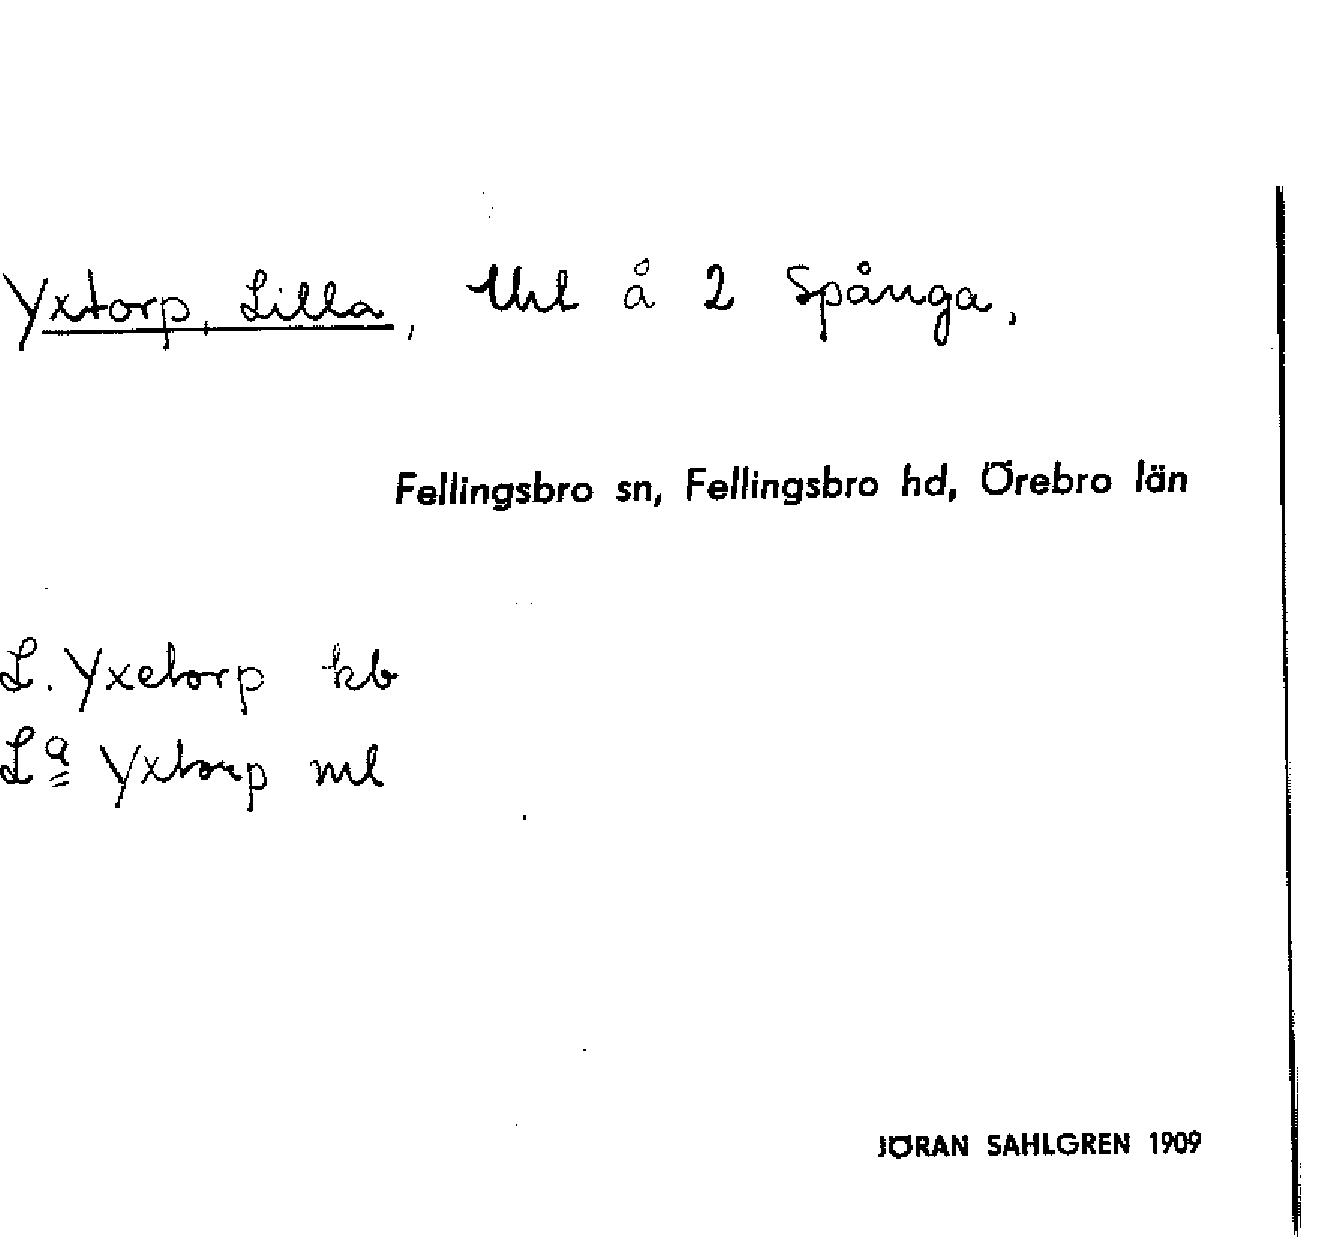 Yxtorp, Lilla, Uht å 2 Spånga,
Fellingsbro sn, Fellingsbro hd, Örebro län
L. Yxetorp kb
Lª Yxtorp ml
JÖRAN SAHLGREN 1909